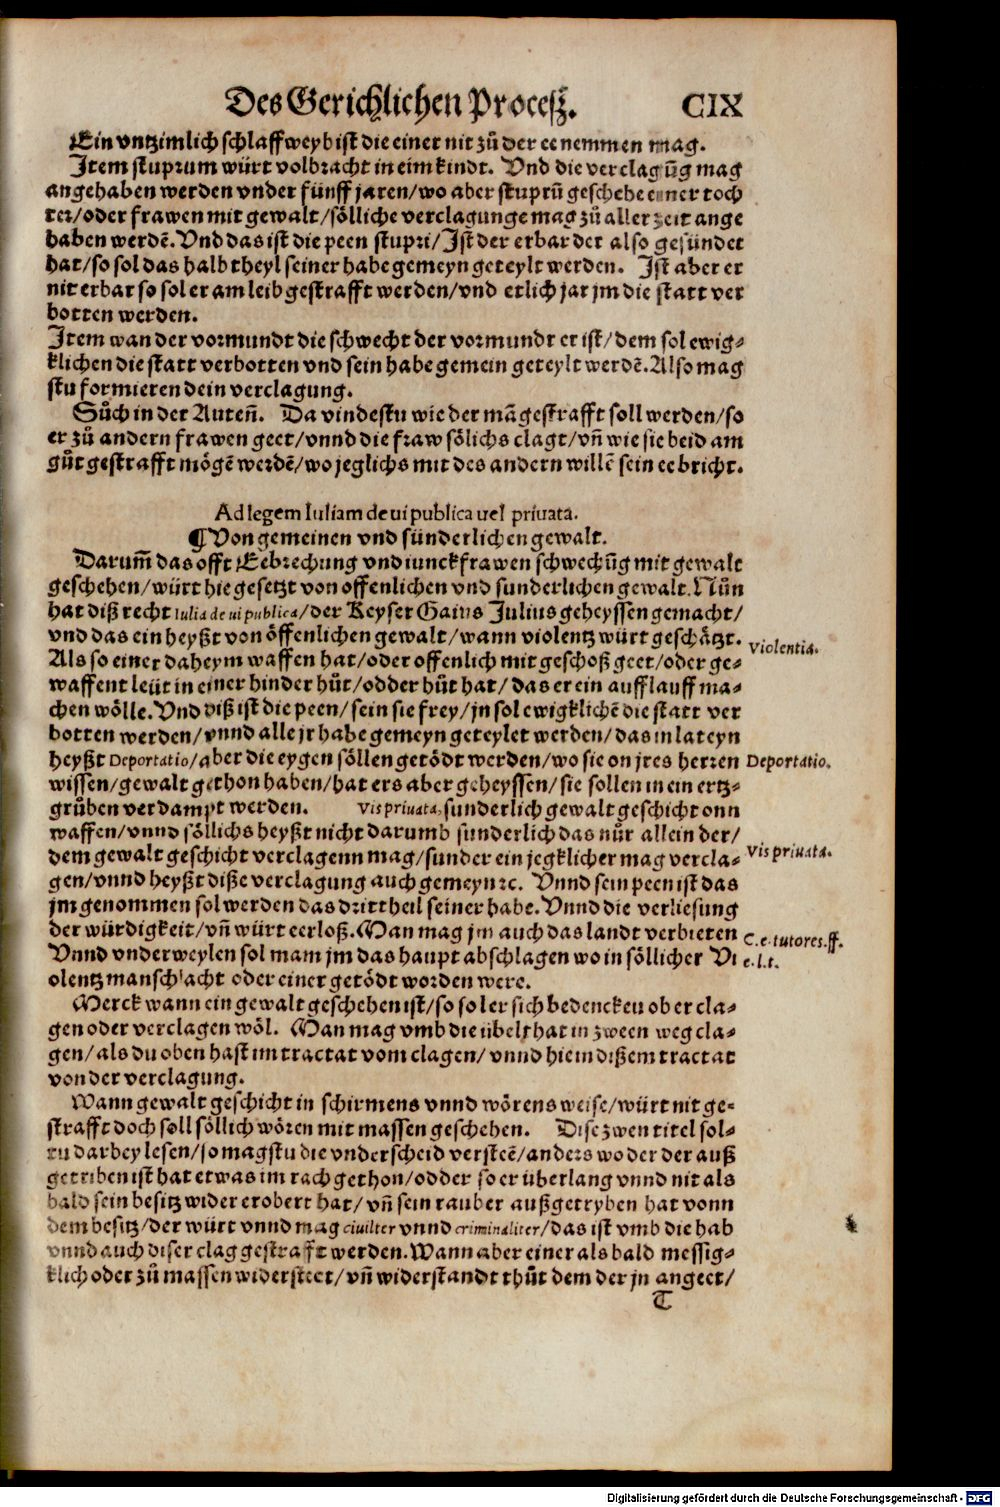 Des Gerichlichen Procesz. CIX
Ein vntzimlich schlaffweyb ist die einer nit zů der ee nemmen mag.
Item stuprum würt volbracht in eim kindt. Vnd die verclagũg mag
angehaben werden vnder fünff jaren/wo aber stuprũ geschehe einer toch
ter/oder frawen mit gewalt/sölliche verclagunge mag zů aller zeit ange
haben werdẽ. Vnd das ist die peen stupri/Ist der erbar der also gesündet
hat/so sol das halb theyl seiner habe gemeyn geteylt werden. Ist aber er
nit erbar so sol er am leib gestrafft werden/vnd etlich jar jm die statt ver
botten werden.
Item wan der vormundt die schwecht der vormundt er ist/dem sol ewig⸗
klichen die statt verbotten vnd sein habe gemein geteylt werdẽ. Also mag
stu formieren dein verclagung.
Sůch in der Auteñ. Da vindestu wie der mã gestrafft soll werden/so
er zů andern frawen geet/vnnd die fraw sölichs clagt/vñ wie sie beid am
gůt gestrafft mögẽ werdẽ/wo jeglichs mit des andern willẽ sein ee bricht.
Ad legem Iuliam de ui publica uel priuata.
¶Von gemeinen vnd sünderlichen gewalt.
Darum̃ das offt Eebrechung vnd iunckfrawen schwechũg mit gewalt
geschehen/würt hie gesetzt von offenlichen vnd sunderlichen gewalt. Nůn
hat diß recht Iulia de ui publica/der Keyser Gaius Julius geheyssen gemacht/
vnd das ein heyßt von öffenlichen gewalt/wann violentz würt geschätzt.
Violentia.
Als so einer daheym waffen hat/oder offenlich mit geschoß geet/oder ge⸗
waffent leüt in einer hinder hůt/odder hůt hat/das er ein aufflauff ma⸗
chen wölle. Vnd diß ist die peen/sein sie frey/jn sol ewigklichẽ die statt ver
botten werden/vnnd alle jr habe gemeyn geteylet werden/das in lateyn
heyßt Deportatio/aber die eygen söllen getödt werden/wo sie on jres herren
Deportatio.
wissen/gewalt gethon haben/hat ers aber geheyssen/sie sollen in ein ertz⸗
grůben verdampt werden. Vis priuata, sunderlich gewalt geschicht onn
waffen/vnnd söllichs heyßt nicht darumb sunderlich das nůr allein der/
dem gewalt geschicht verclagenn mag/sunder ein jegklicher mag vercla⸗
Vis priuata.
gen/vnnd heyßt diße verclagung auch gemeyn ꝛc. Vnnd sein peen ist das
jm genommen sol werden das drittheil seiner habe. Vnnd die verliesung
der würdigkeit/vñ würt eerloß. Man mag jm auch das landt verbieten
C. e. tutores. ff.
Vnnd vnderweylen sol mam jm das haupt abschlagen wo in söllicher Vi
e. l. t.
olentz manschlacht oder einer getödt worden were.
Merck wann ein gewalt geschehen ist/so sol er sich bedencken ob er cla⸗
gen oder verclagen wöl. Man mag vmb die übelthat in zween weg cla⸗
gen/als du oben hast im tractat vom clagen/vnnd hie in dißem tractat
von der verclagung.
Wann gewalt geschicht in schirmens vnnd wörens weise/würt nit ge⸗
strafft doch soll söllich wören mit massen geschehen. Dise zwen titel sol⸗
tu darbey lesen/so magstu die vnderscheid versteẽ/anders wo der der auß
getriben ist hat etwas im rach gethon/odder so er überlang vnnd nit als
bald sein besitz wider erobert hat/vñ sein rauber außgetryben hat vonn
dem besitz/der würt vnnd mag ciuiliter vnnd criminaliter/das ist vmb die hab
vnnd auch diser clag gestrafft werden. Wann aber einer als bald messig⸗
klich oder zů massen widersteet/vñ widerstandt thůt dem der jn angeet/
T
Digitalisierung gefördert durch die Deutsche Forschungsgemeinschaft - DFG